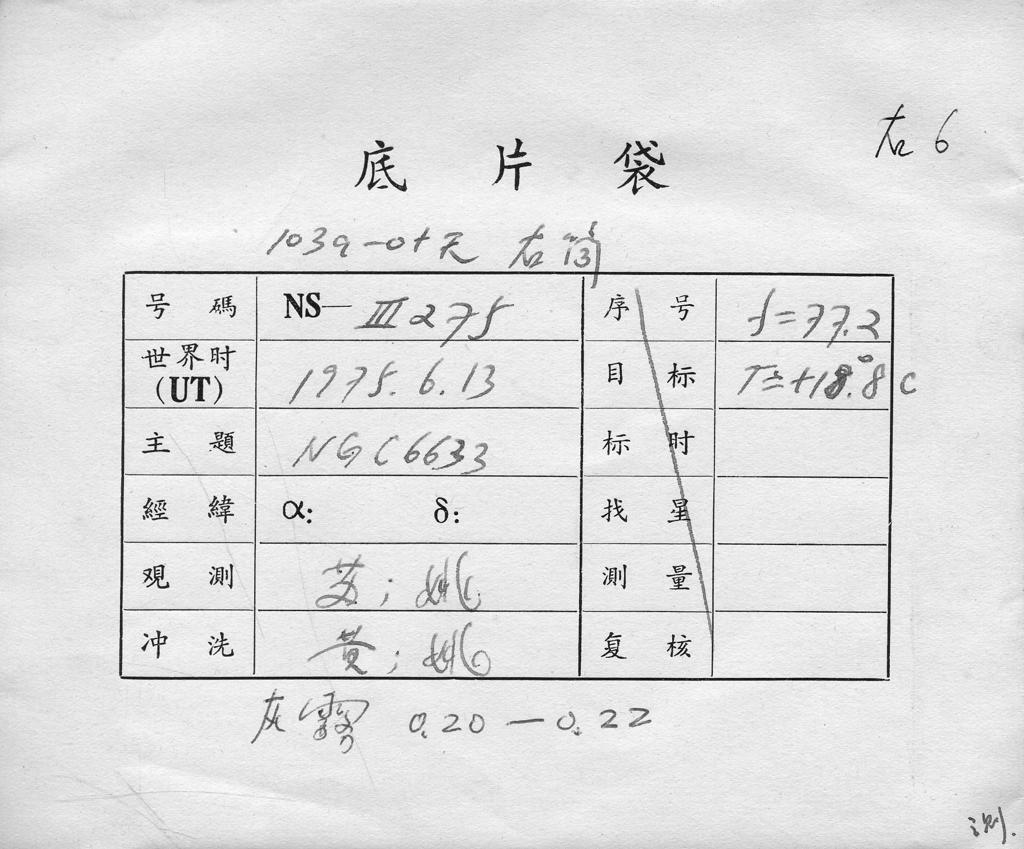 右6
底片袋
103a-O+天 右筒
号碼 NS—III275 序号 f=77.2
世界时(UT) 1975.6.13 目标 T=+18.8°C
主題 NGC6633 标时
經緯 α: δ: 找星
观測 苏;姚 測量
冲洗 黄;姚 复核
灰雾 0.20—0.22
测.